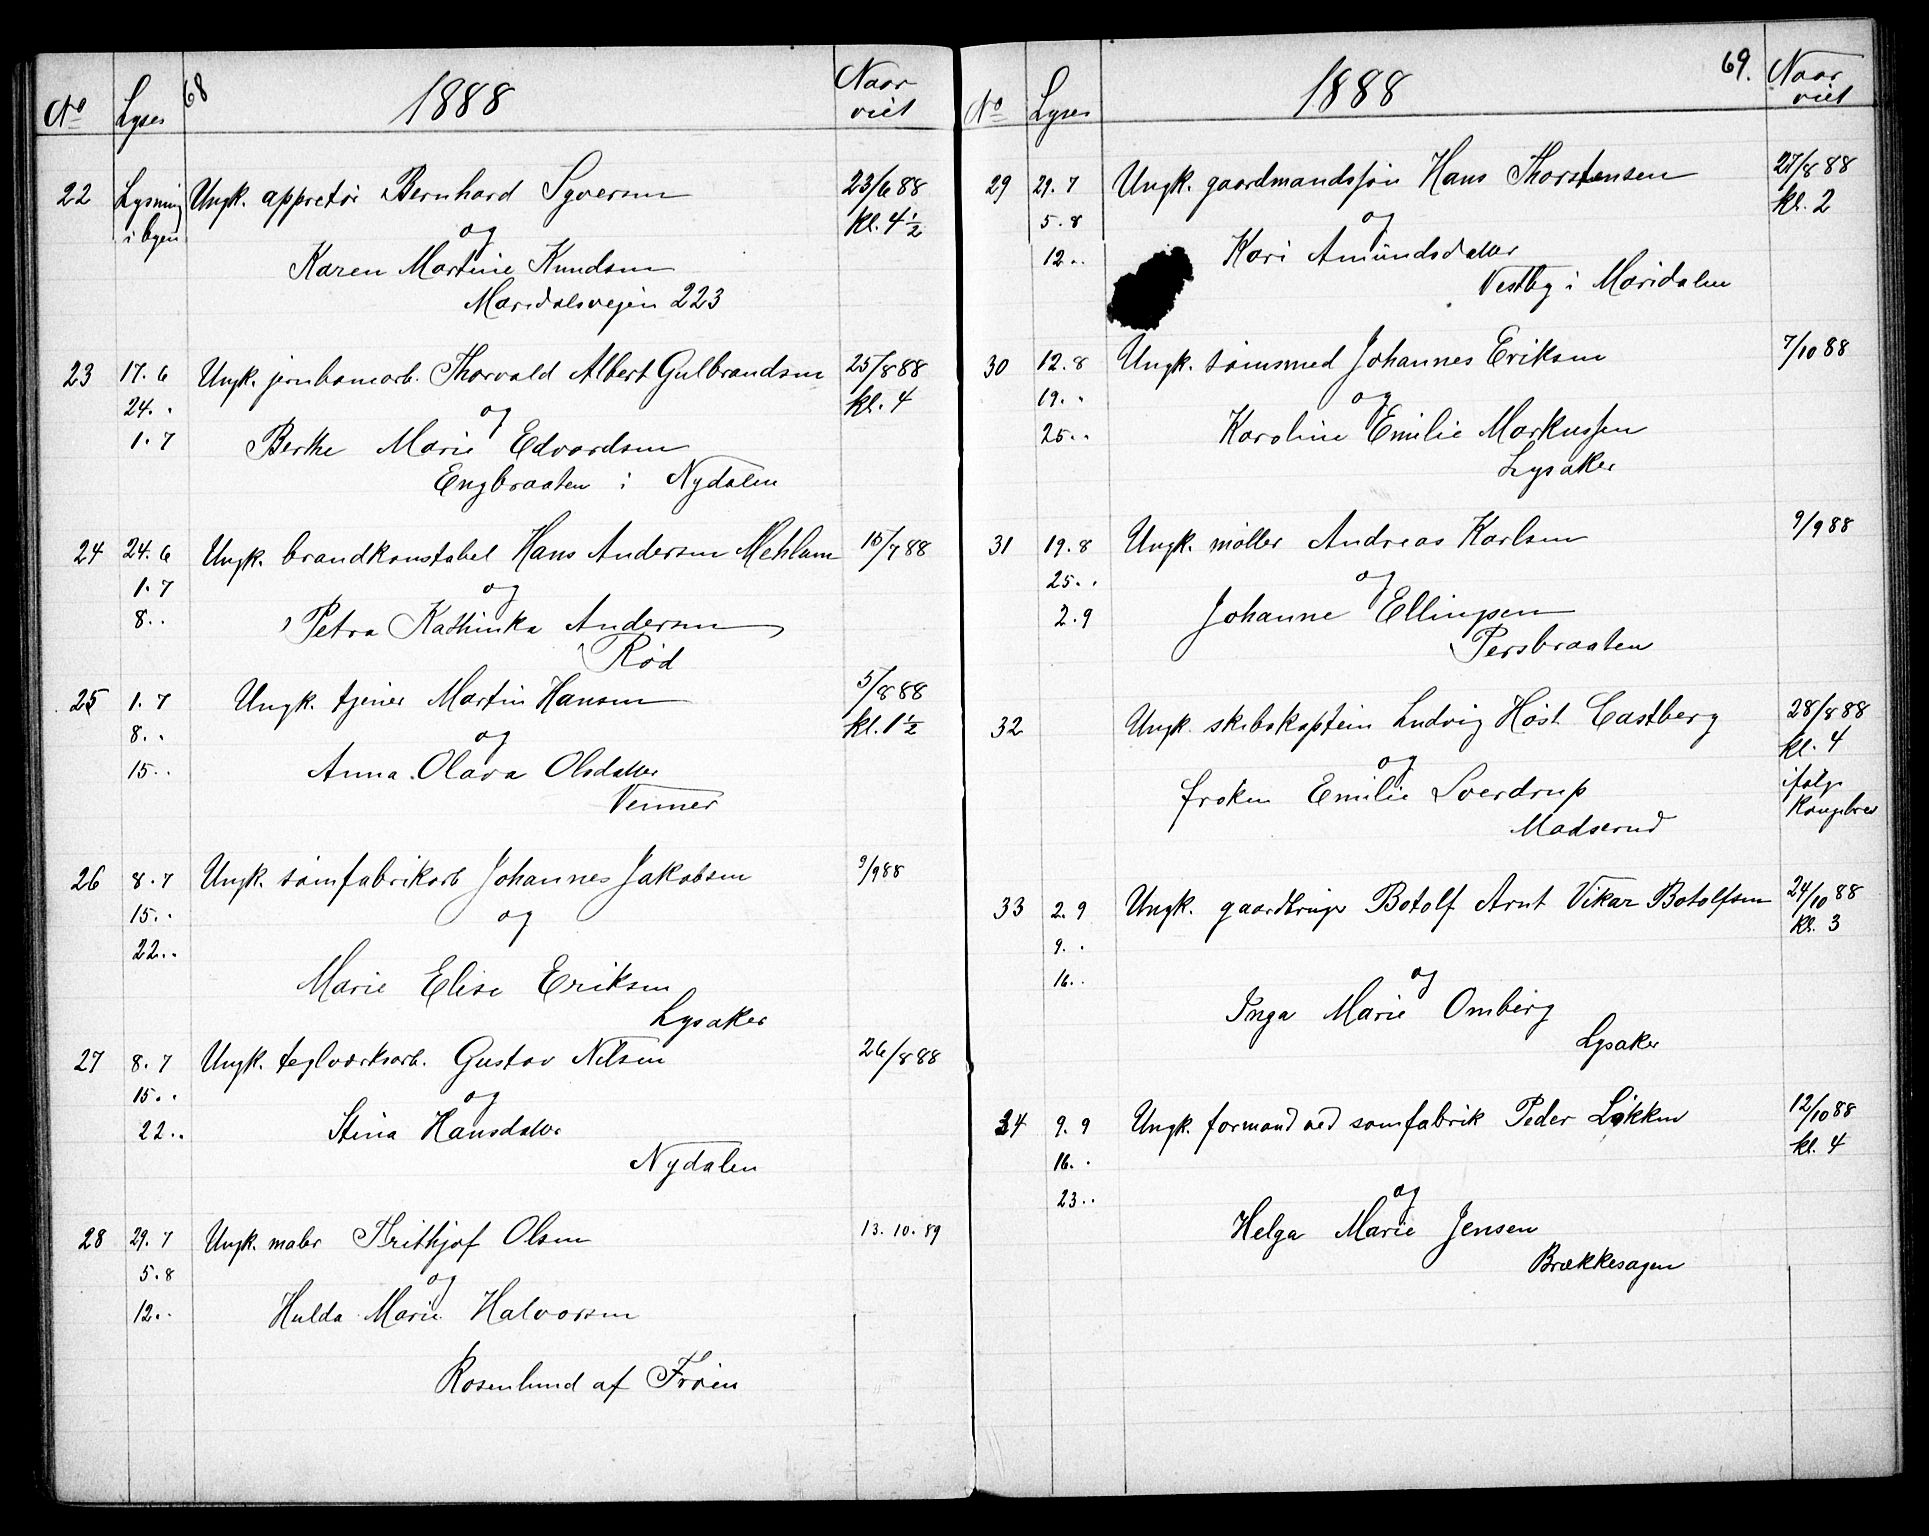 68
No Lyses 1888 Naar viet
22 Lysning Ungk. appretør Bernhard Syversen 23/6 88
i byen og kl. 4 1/2
Karen Martine Knudsen
Maridalsvejen 223
23 17. 6 Ungk. jernbanearb. Thorvald Albert Gulbrandsen 25/8 88
24. " og kl. 4
1. 7 Berthe Marie Edvardsen
Engbraaten i Nydalen
24 24. 6 Ungk. brandkonstabel Hans Andersen Mehlum 15/7 88
1. 7 og
8. " Petra Kathinka Andersen
Rød
25 1. 7 Ungk. tjener Martin Hansen 5/8 88
8. " og kl. 1 1/2
15. " Anna Olava Olsdatter
Venner
26 8. 7 Ungk. sømfabrikarb Johannes Jakobsen 9/9 88
15. " og
22. "
Marie Elise Eriksen
Lysaker
27 8. 7 Ungk. teglværksarb. Gustav Nilsen 26/8 88
15. " og
22. " Stina Hansdatter
Nydalen
28 29. 7 Ungk. maler Frithjof Olsen 13. 10. 89
5. 8 og
12. " Hulda Marie Halvorsen
Rosenlund af Frøen
69.
No Lyses 1888 Naar viet
29 29. 7 Ungk. gaardmandssøn Hans Thorstensen 27/8 88
5. 8 og kl. 2
12. " Kari Amundsdatter
Vestby i Maridalen
30 12. 8 Ungk. sømsmed Johannes Eriksen 7/10 88
19. " og
25. " Karoline Emilie Markussen
Lysaker
31 19. 8 Ungk. møller Andreas Karlsen 9/9 88
25. " og
2. 9 Johanne Ellingsen
Persbraaten
32 Ungk. skibskaptein Ludvig Høst Castberg 28/8 88
og kl. 4
frøken Emilie Sverdrup ifølge
Madserud Kongebrev
33 2. 9 Ungk. gaardbruger Botolf Arnt Vikar Botolfsen 24/10 88
9. " kl. 3
16. " og
Inga Marie Omberg
Lysaker
34 9. 9 Ungk. formand ved sømfabrik Peder Løkken 12/10 88
16. " kl. 4
23. " og
Helga Marie Jensen
Brækkesagen